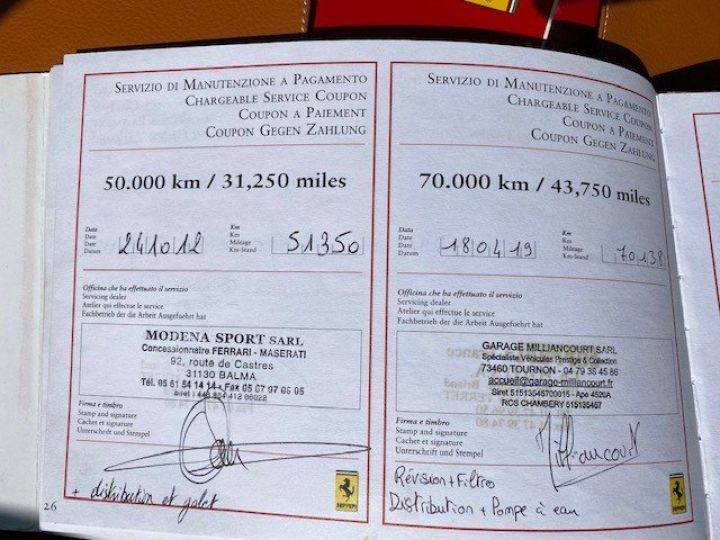 SERVIZIO DI MANUTENZIONE A PAGAMENTO
CHARGEABLE SERVICE COUPON
COUPON A PAIEMENT
COUPON GEGEN ZAHLUNG
50.000 km / 31,250 miles
Data
Date
Date
Datum
241012
Km
Km
Mileage
Km-Stand
51350
Officina che ha effettuato il servizio
Servicing dealer
Atelier qui effectue le service
Fachbetrieb der die Arbeit Ausgefuehrt hat
MODENA SPORT SARL
Concessionnaire FERRARI - MASERATI
92, route de Castres
31130 BALMA
Tél. 05 61 54 14 14 - Fax 05 67 97 06 05
Firma e timbro
Stamp and signature
Cachet et signature
Unterschrift und Stempel
+ distribution et galet
26
SERVIZIO DI MANUTENZIONE A PAGAMENTO
CHARGEABLE SERVICE COUPON
COUPON A PAIEMENT
COUPON GEGEN ZAHLUNG
70.000 km / 43,750 miles
Data
Date
Date
Datum
180419
Km
Km
Mileage
Km-Stand
70138
Officina che ha effettuato il servizio
Servicing dealer
Atelier qui effectue le service
Fachbetrieb der die Arbeit Ausgefuehrt hat
GARAGE MILLIANCOURT SARL
Spécialiste Véhicules Prestige & Collection
73460 TOURNON - 04 79 38 45 86
accueil@garage-milliancourt.fr
Siret 51513545700015 - Ape 4520A
RCS CHAMBERY 515135457
Firma e timbro
Stamp and signature
Cachet et signature
Unterschrift und Stempel
Milliancourt
Révision + Filtres
Distribution + Pompe à eau